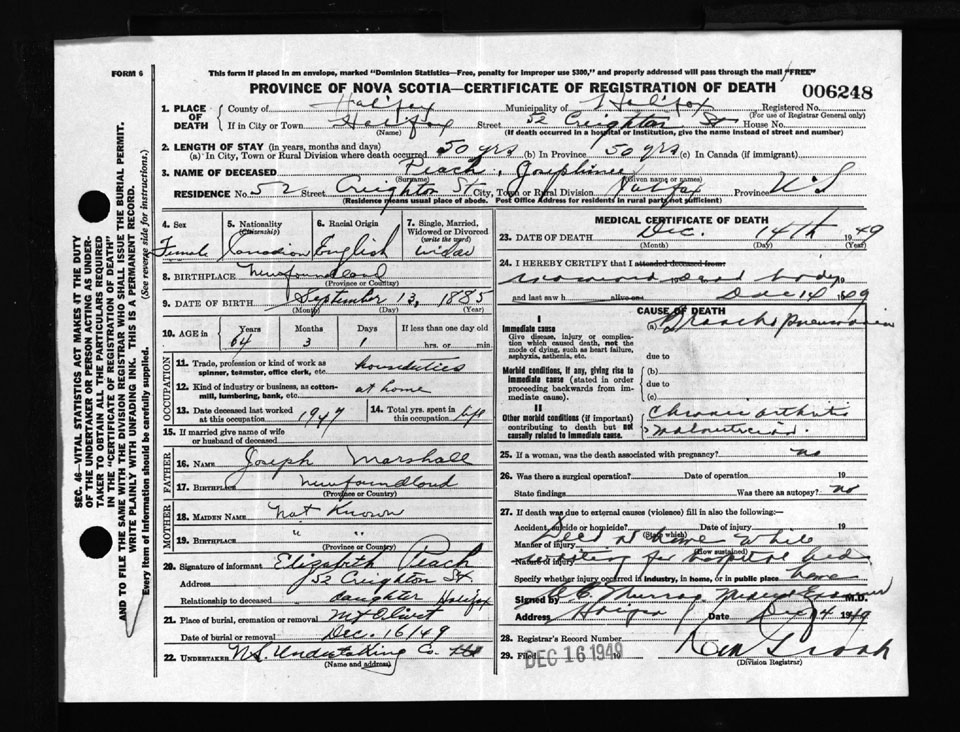 FORM 6
This form if placed in an envelope, marked "Dominion Statistics—Free, penalty for improper use $300," and properly addressed will pass through the mail "FREE"
PROVINCE OF NOVA SCOTIA—CERTIFICATE OF REGISTRATION OF DEATH
006248
1. PLACE OF DEATH
County of Halifax Municipality of Halifax Registered No.
(For use of Registrar General only)
If in City or Town Halifax Street 52 Creighton St House No.
(Name) (If death occurred in a hospital or institution, give the name instead of street and number)
2. LENGTH OF STAY (in years, months and days)
(a) In City, Town or Rural Division where death occurred 50 yrs (b) In Province 50 yrs (c) In Canada (if immigrant)
3. NAME OF DECEASED Peach, Josephine
(Surname) (Given name or names)
RESIDENCE No. 52 Street Creighton St City, Town or Rural Division Halifax Province N S
(Residence means usual place of abode. Post Office Address for residents in rural parts not sufficient)
4. Sex
Female
5. Nationality
(Citizenship)
Canadian
6. Racial Origin
English
7. Single, Married, Widowed or Divorced
(write the word)
widow
8. BIRTHPLACE Newfoundland
(Province or Country)
9. DATE OF BIRTH September 13, 1885
(Month) (Day) (Year)
10. AGE in
Years Months Days If less than one day old
64 3 1 hrs. or min.
OCCUPATION
11. Trade, profession or kind of work as
spinner, teamster, office clerk, etc.
12. Kind of industry or business, as cotton-
mill, lumbering, bank, etc. at home
13. Date deceased last worked
at this occupation 1947
14. Total yrs. spent in
this occupation life
15. If married give name of wife
or husband of deceased
FATHER
16. NAME Joseph Marshall
17. BIRTHPLACE Newfoundland
(Province or Country)
MOTHER
18. MAIDEN NAME Not Known
19. BIRTHPLACE " "
(Province or Country)
20. Signature of informant Elizabeth Peach
Address 52 Creighton St
Relationship to deceased daughter Halifax
21. Place of burial, cremation or removal Mt Olivet
Date of burial or removal Dec. 16/49
22. UNDERTAKER N.S. Undertaking Co.
(Name and address)
MEDICAL CERTIFICATE OF DEATH
23. DATE OF DEATH Dec. 14th 1949
(Month) (Day) (Year)
24. I HEREBY CERTIFY that I attended deceased from:
dead body
and last saw h alive on Dec 14 1949
CAUSE OF DEATH
I
Immediate cause
Give disease, injury or complication which caused death, not the mode of dying, such as heart failure, asphyxia, asthenia, etc.
(a) Broncho Pneumonia
due to
Morbid conditions, if any, giving rise to immediate cause (stated in order proceeding backwards from immediate cause).
(b)
due to
(c)
II
Other morbid conditions (if important) contributing to death but not causally related to immediate cause.
Chronic arthritis
Malnutrition
25. If a woman, was the death associated with pregnancy? no
26. Was there a surgical operation? Date of operation 19
State findings Was there an autopsy? no
27. If death was due to external causes (violence) fill in also the following:
Accident, suicide or homicide? Date of injury 19
(State which)
Manner of injury Died at home while
(How sustained)
Nature of injury waiting for hospital bed
Specify whether injury occurred in industry, in home, or in public place home
Signed by Murray Medical Examiner M.D.
Address Date Dec 14 1949
28. Registrar's Record Number
29. Filed DEC 16 1949 19
(Division Registrar)
SEC. 46—VITAL STATISTICS ACT MAKES IT THE DUTY
OF THE UNDERTAKER OR PERSON ACTING AS UNDER-
TAKER TO OBTAIN ALL THE PARTICULARS REQUIRED
IN THE "CERTIFICATE OF REGISTRATION OF DEATH"
AND TO FILE THE SAME WITH THE DIVISION REGISTRAR WHO SHALL ISSUE THE BURIAL PERMIT.
WRITE PLAINLY WITH UNFADING INK. THIS IS A PERMANENT RECORD.
Every item of Information should be carefully supplied. (See reverse side for instructions.)